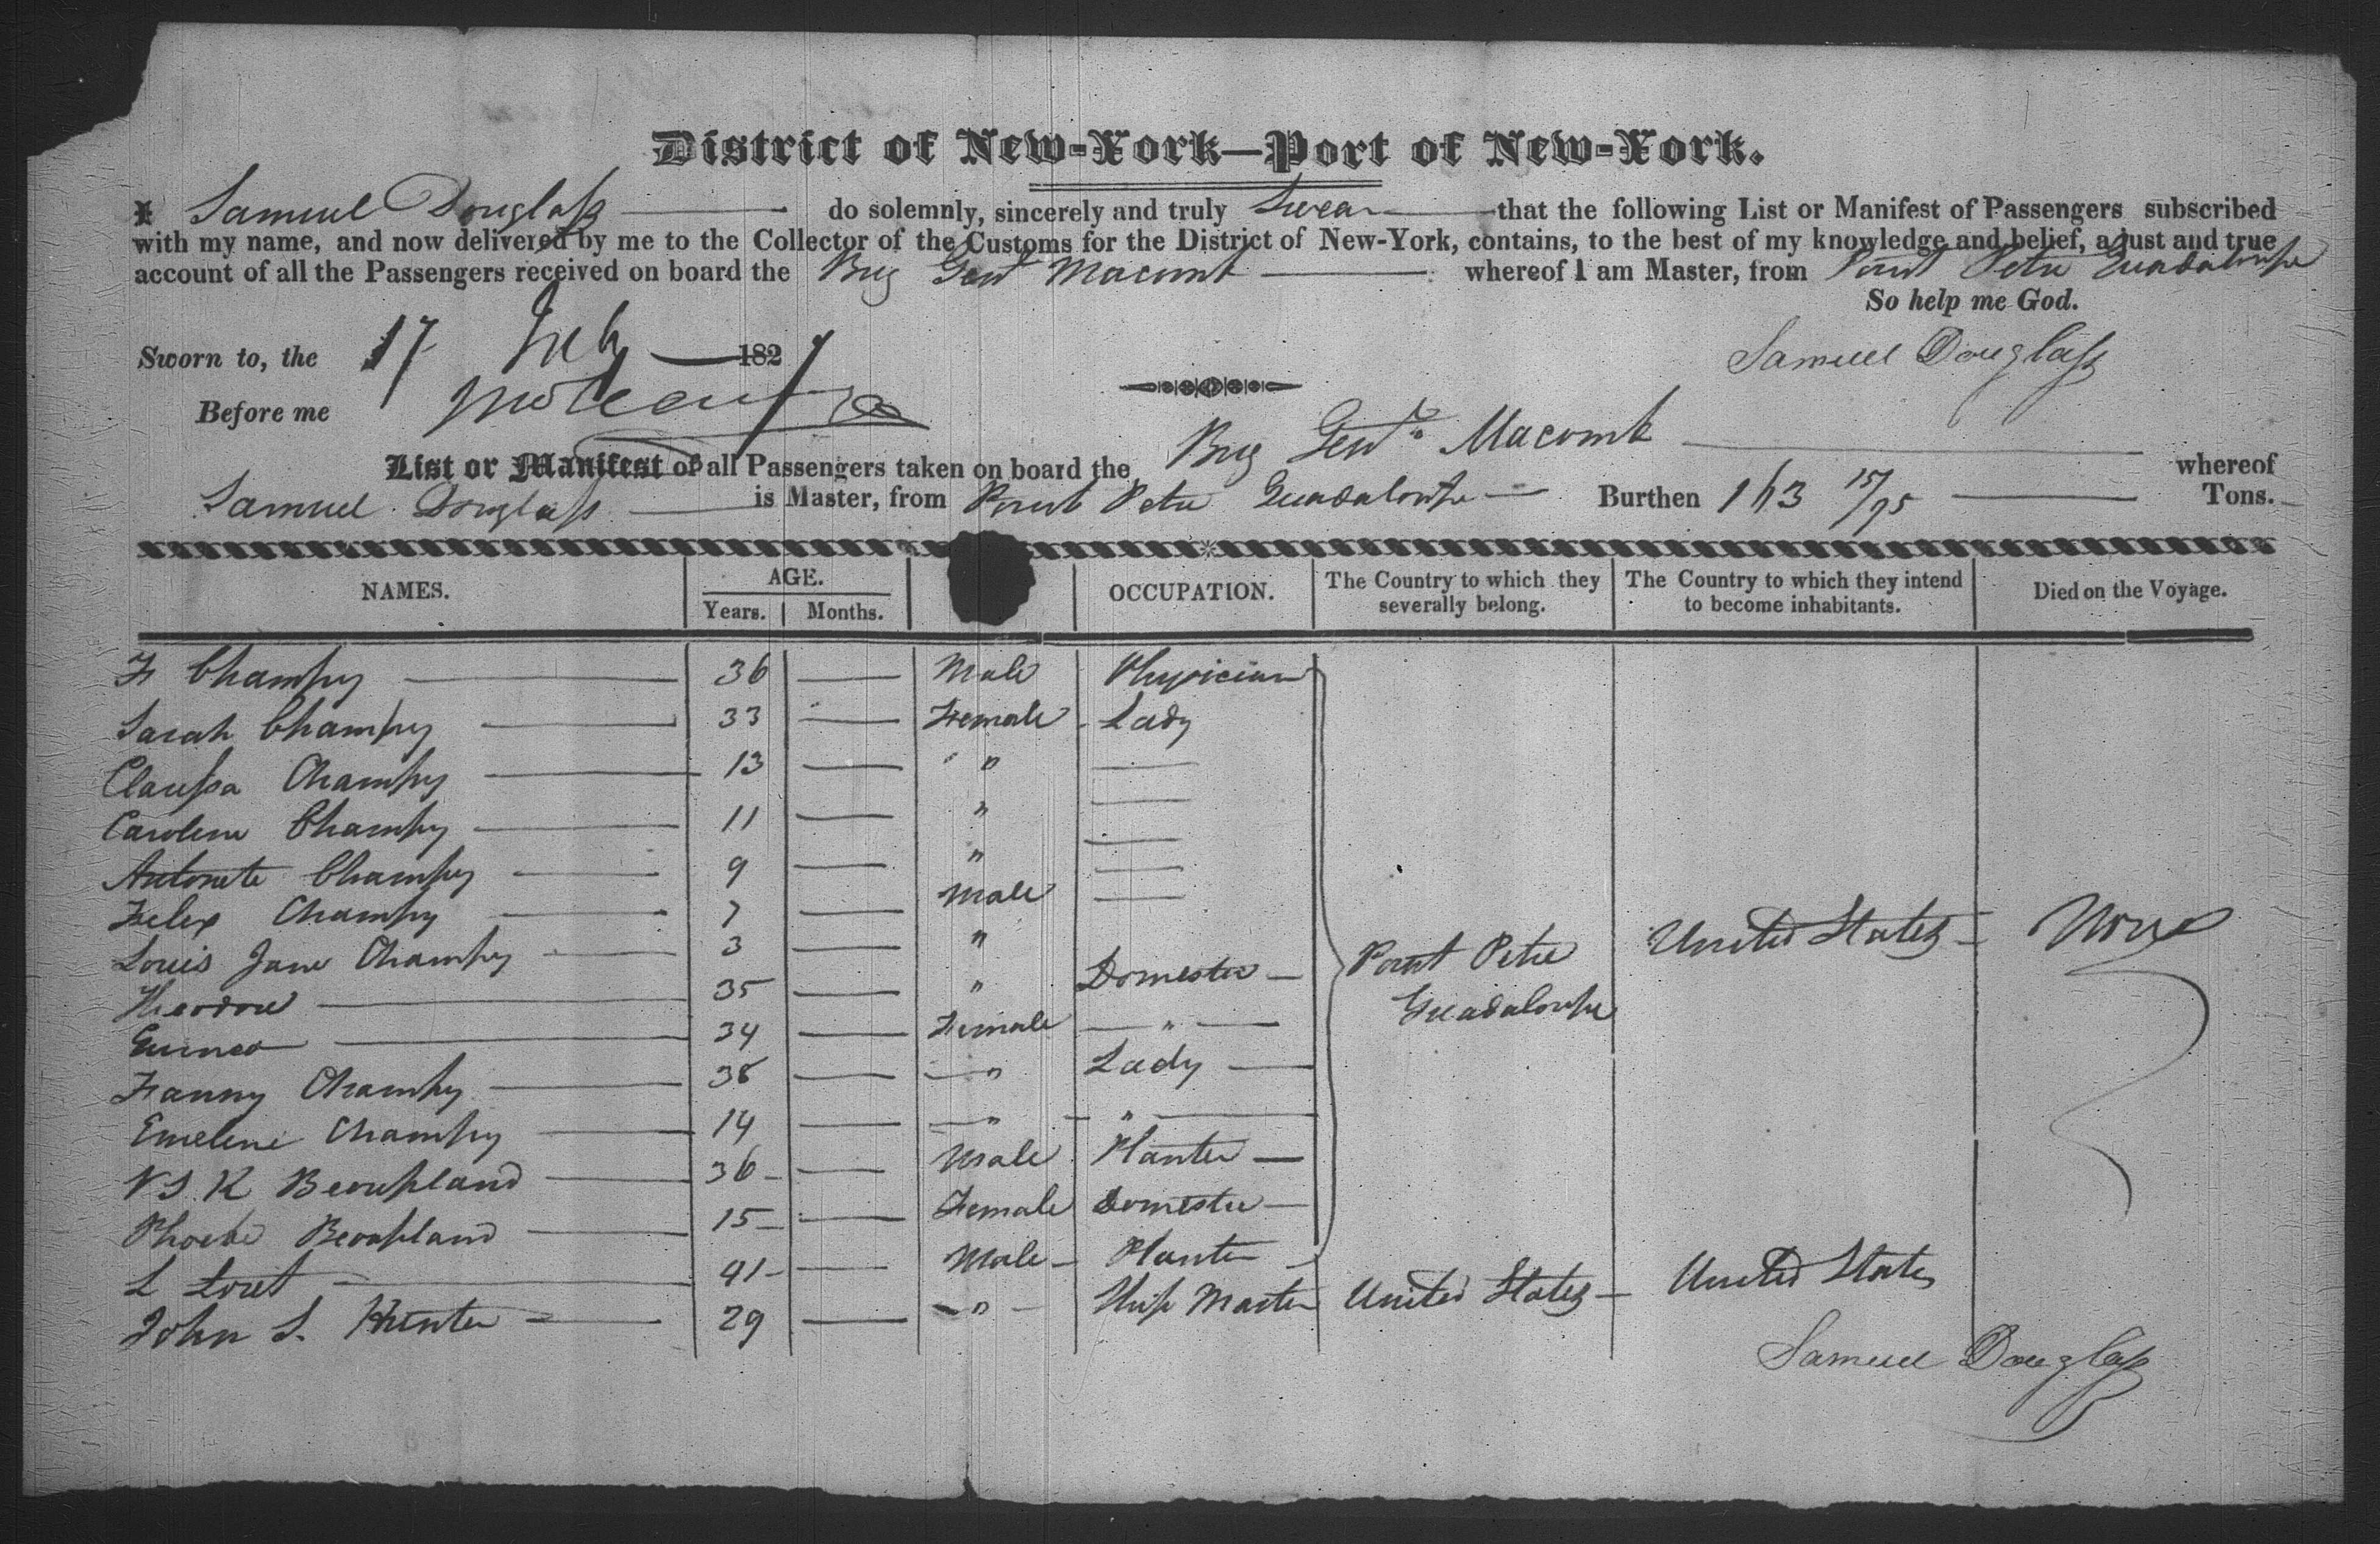 District of New-York—Port of New-York.
I Samuel Douglass do solemnly, sincerely and truly Swear that the following List or Manifest of Passengers subscribed
with my name, and now delivered by me to the Collector of the Customs for the District of New-York, contains, to the best of my knowledge and belief, a just and true
account of all the Passengers received on board the Brig Genl Macomb whereof I am Master, from Point Petre Guadaloupe
So help me God.
Sworn to, the 17 July 1827
Samuel Douglass
Before me
List or Manifest of all Passengers taken on board the Brig Genl Macomb whereof
Samuel Douglass is Master, from Point Petre Guadaloupe Burthen 163 15/95 Tons.
NAMES. AGE. Years. Months. OCCUPATION. The Country to which they severally belong. The Country to which they intend to become inhabitants. Died on the Voyage.
F Champy 36 Male Physician
Sarah Champy 33 Female Lady
Claussa Champy 13 "
Caroline Champy 11 "
Antonete Champy 9 "
Felix Champy 7 Male
Louis Jane Champy 3 "
Theodore 35 " Domestic Point Petre Guadaloupe United States None
34 Female "
Fanny Champy 38 " Lady
Emelene Champy 14 " "
36 Male Planter
Phoebe 15 Female Domestic
L Loret 41 Male Planter
John S. Hunter 29 " Ship Master United States United States
Samuel Douglass